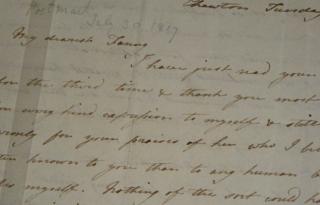 Postmark
July 30. 1817
Chawton Tuesday
My dearest Fanny
I have just read your
for the third time & thank you most
every kind expression to myself & still
for your praises of her who I
known to you than to any human
myself. Nothing of the sort could